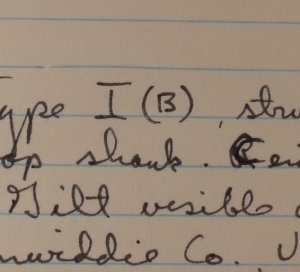 Type I (B), stru
op shank. Cei
Gilt visible
nwiddie Co. V